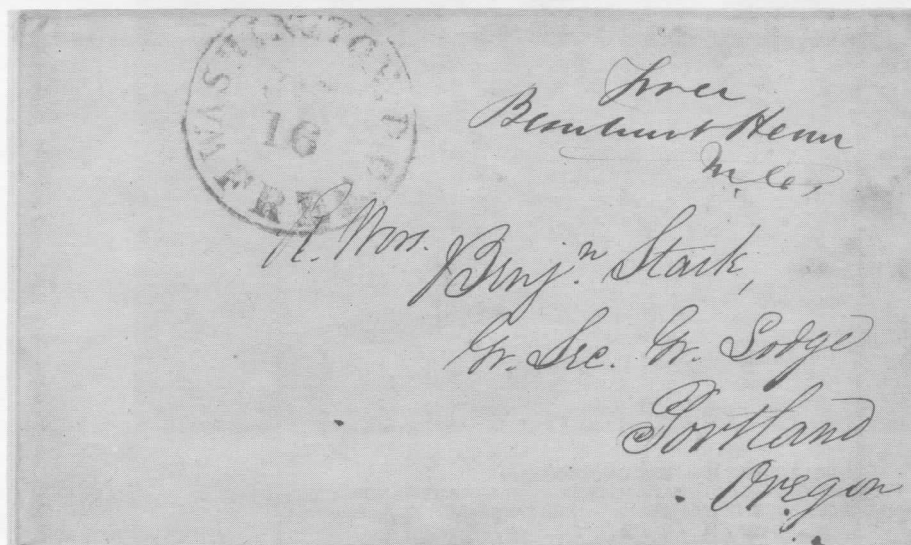 WASHINGTON D.C.
16
FREE
Free
Bernhart Henn
M.C.
R. Wors. Benjⁿ. Stark,
Gr. Sec. Gr. Lodge
Portland
Oregon